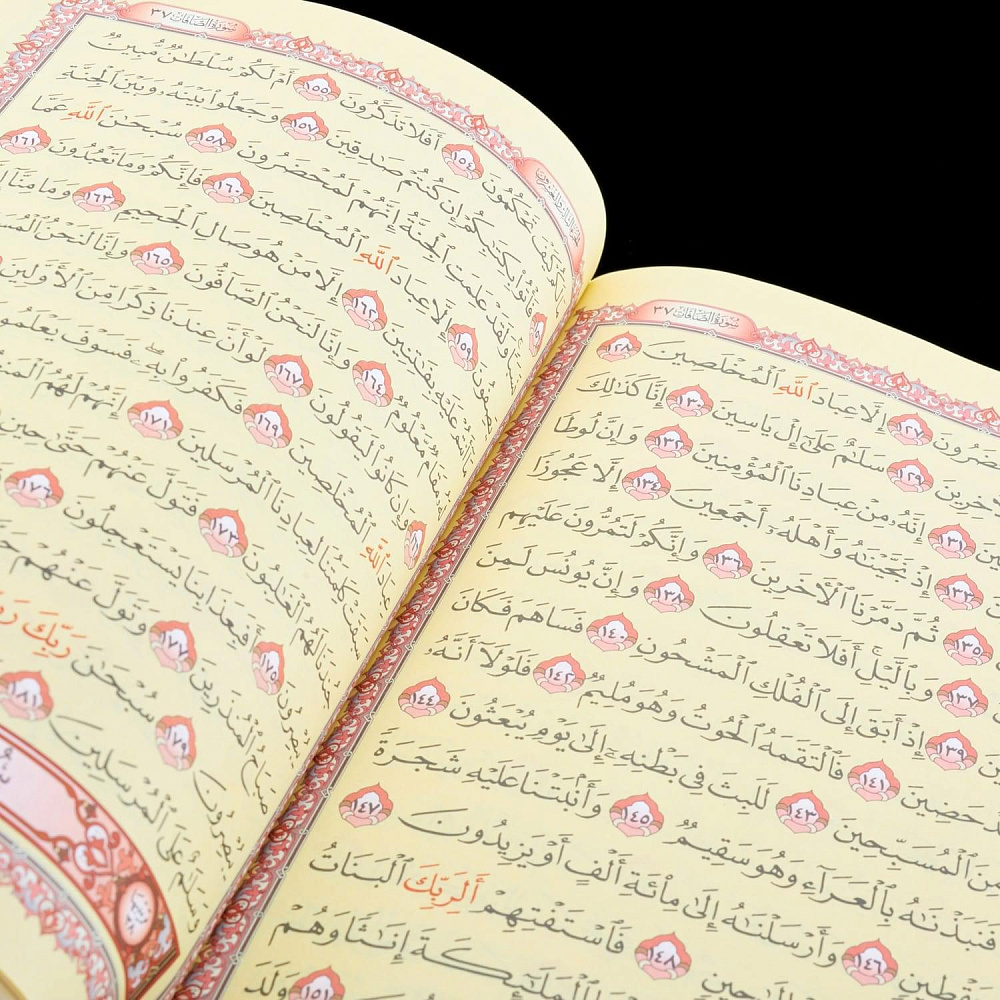 سُورَةُ الصَّافَّاتِ ٣٧
إِلَّا عِبَادَ ٱللَّهِ ٱلْمُخْلَصِينَ ١٢٨ ١٢٧
١٢٩ سَلَٰمٌ عَلَىٰٓ إِلْ يَاسِينَ ١٣٠ إِنَّا كَذَٰلِكَ
١٣١ إِنَّهُۥ مِنْ عِبَادِنَا ٱلْمُؤْمِنِينَ ١٣٢ وَإِنَّ لُوطًا
١٣٣ إِذْ نَجَّيْنَٰهُ وَأَهْلَهُۥٓ أَجْمَعِينَ ١٣٤ إِلَّا عَجُوزًا
١٣٥ ثُمَّ دَمَّرْنَا ٱلْأَخَرِينَ ١٣٦ وَإِنَّكُمْ لَتَمُرُّونَ عَلَيْهِم
١٣٧ وَبِٱلَّيْلِ أَفَلَا تَعْقِلُونَ ١٣٨ وَإِنَّ يُونُسَ لَمِنَ
١٣٩ إِذْ أَبَقَ إِلَى ٱلْفُلْكِ ٱلْمَشْحُونِ ١٤٠ فَسَاهَمَ فَكَانَ
١٤١ فَٱلْتَقَمَهُ ٱلْحُوتُ وَهُوَ مُلِيمٌ ١٤٢ فَلَوْلَآ أَنَّهُۥ
مِنَ ٱلْمُسَبِّحِينَ ١٤٣ لَلَبِثَ فِى بَطْنِهِۦٓ إِلَىٰ يَوْمِ يُبْعَثُونَ ١٤٤
فَنَبَذْنَٰهُ بِٱلْعَرَآءِ وَهُوَ سَقِيمٌ ١٤٥ وَأَنۢبَتْنَا عَلَيْهِ شَجَرَةً
يَقْطِينٍ ١٤٦ وَأَرْسَلْنَٰهُ إِلَىٰ مِا۟ئَةِ أَلْفٍ أَوْ يَزِيدُونَ ١٤٧
١٤٨ فَٱسْتَفْتِهِمْ أَلِرَبِّكَ ٱلْبَنَاتُ
ٱلْمَلَٰٓئِكَةَ إِنَٰثًا وَهُمْ
١٥١ وَلَدَ
سُورَةُ الصَّافَّاتِ ٣٧
كَيْفَ تَحْكُمُونَ ١٥٤ أَفَلَا تَذَكَّرُونَ ١٥٥ أَمْ لَكُمْ سُلْطَٰنٌ مُّبِينٌ
فَأْتُوا۟ بِكِتَٰبِكُمْ إِن كُنتُمْ صَٰدِقِينَ ١٥٧ وَجَعَلُوا۟ بَيْنَهُۥ وَبَيْنَ ٱلْجِنَّةِ
وَلَقَدْ عَلِمَتِ ٱلْجِنَّةُ إِنَّهُمْ لَمُحْضَرُونَ ١٥٨ سُبْحَٰنَ ٱللَّهِ عَمَّا
١٥٩ إِلَّا عِبَادَ ٱللَّهِ ٱلْمُخْلَصِينَ ١٦٠ فَإِنَّكُمْ وَمَا تَعْبُدُونَ ١٦١
عَلَيْهِ بِفَٰتِنِينَ ١٦٢ إِلَّا مَنْ هُوَ صَالِ ٱلْجَحِيمِ ١٦٣ وَمَا مِنَّآ
مَّعْلُومٌ ١٦٤ وَإِنَّا لَنَحْنُ ٱلصَّآفُّونَ ١٦٥ وَإِنَّا لَنَحْنُ
وَإِن كَانُوا۟ لَيَقُولُونَ ١٦٧ لَوْ أَنَّ عِندَنَا ذِكْرًا مِّنَ ٱلْأَوَّلِينَ
ٱللَّهِ ٱلْمُخْلَصِينَ ١٦٩ فَكَفَرُوا۟ بِهِۦ فَسَوْفَ يَعْلَمُونَ
كَلِمَتُنَا لِعِبَادِنَا ٱلْمُرْسَلِينَ ١٧١ إِنَّهُمْ لَهُمُ
لَهُمُ ٱلْغَٰلِبُونَ ١٧٣ فَتَوَلَّ عَنْهُمْ حَتَّىٰ حِينٍ
١٧٥ أَفَبِعَذَابِنَا يَسْتَعْجِلُونَ ١٧٦
صَبَاحُ ٱلْمُنذَرِينَ ١٧٧ وَتَوَلَّ عَنْهُمْ
١٧٩ سُبْحَٰنَ رَبِّكَ
وَسَلَٰمٌ عَلَى ٱلْمُرْسَلِينَ ١٨١